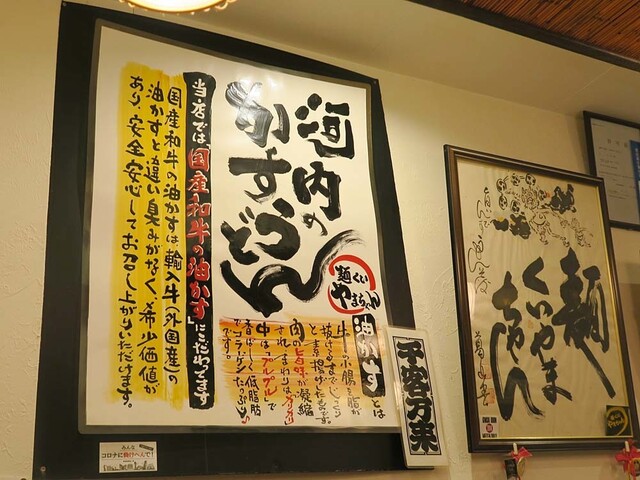 河内の
かすうどん
麺くい
やまちゃん
当店では「国産和牛の油かす」にこだわってます
国産和牛の油かすは、輸入牛(外国産)の
油かすと違い臭みがなく、希少価値が
あり、安全安心してお召し上がりいただけます。
油かすとは
牛の小腸を脂が
抜けるまでじっくり
と素揚げしたものです。
肉の旨味が凝縮
され、まわりはカリカリ
中は「プルプル」で
です。
千客万来
麺
くいやま
ちゃん
みんな
コロナに負けへんで!